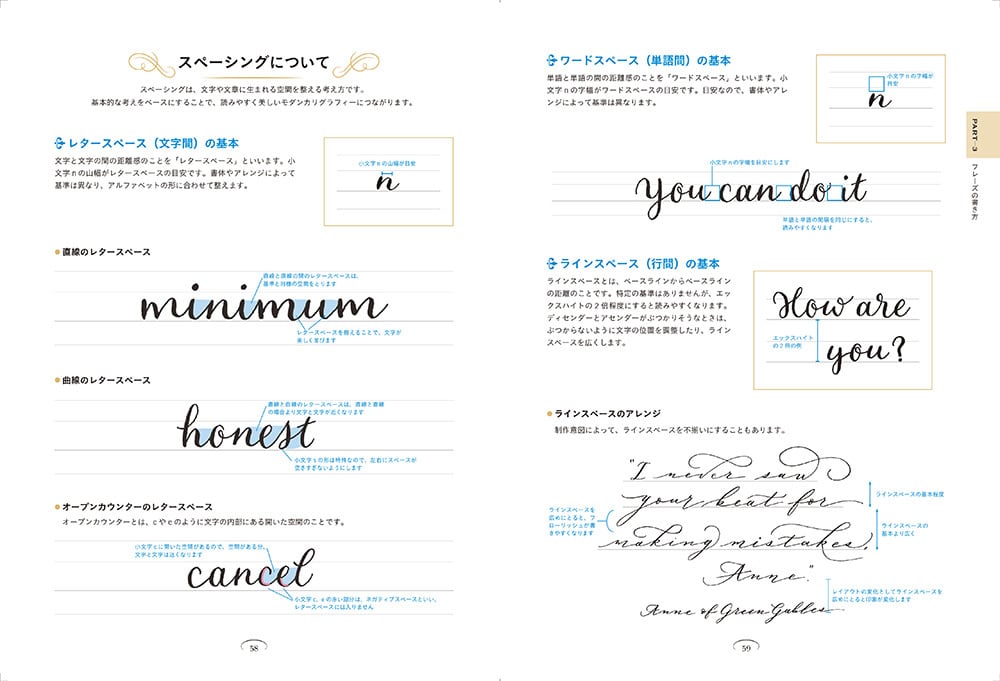 スペーシングについて
スペーシングは、文字や文章に生まれる空間を整える考え方です。
基本的な考えをベースにすることで、読みやすく美しいモダンカリグラフィーにつながります。
レタースペース（文字間）の基本
文字と文字の間の距離感のことを「レタースペース」といいます。小
文字nの山幅がレタースペースの目安です。書体やアレンジによって
基準は異なり、アルファベットの形に合わせて整えます。
小文字nの山幅が目安
n
直線のレタースペース
直線と直線の間のレタースペースは、
基準と同様の空間をとります
minimum
レタースペースを揃えることで、文字が
美しく並びます
曲線のレタースペース
直線と曲線のレタースペースは、直線と直線
の場合より文字と文字が近くなります
honest
小文字sの形は特殊なので、左右にスペースが
空きすぎないようにします
オープンカウンターのレタースペース
オープンカウンターとは、cやeのように文字の内部にある開いた空間のことです。
小文字cに開いた空間があるので、空間がある分、
文字と文字は近くなります
cancel
小文字c、eの赤い部分は、ネガティブスペースといい、
レタースペースには入りません
58
ワードスペース（単語間）の基本
単語と単語の間の距離感のことを「ワードスペース」といいます。小
文字nの字幅がワードスペースの目安です。目安なので、書体やアレ
ンジによって基準は異なります。
小文字nの字幅が
目安
n
小文字nの字幅を目安にします
you can do it
単語と単語の間隔を同じにすると、
読みやすくなります
ラインスペース（行間）の基本
ラインスペースとは、ベースラインからベースライン
の距離のことです。特定の基準はありませんが、エッ
クスハイトの2倍程度にすると読みやすくなります。
ディセンダーとアセンダーがぶつかりそうなときは、
ぶつからないように文字の位置を調整したり、ライン
スペースを広くします。
How are
you?
エックスハイト
の2倍の例
ラインスペースのアレンジ
制作意図によって、ラインスペースを不揃いにすることもあります。
"I never saw
your beat for
making mistakes,
Anne."
Anne of Green Gables
ラインスペースの基本程度
ラインスペースを
広めにとると、フ
ローリッシュが書
きやすくなります
ラインスペースの
基本より広く
レイアウトの変化としてラインスペースを
広めにとると印象が変化します
59
PART-3
フレーズの書き方